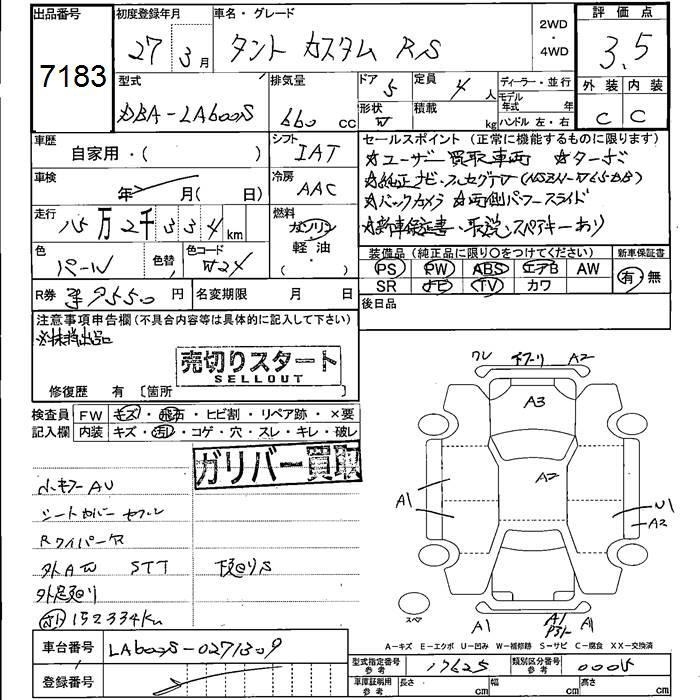 出品番号
7183
初度登録年月
27 3 月
車名・グレード
タント カスタム RS
2WD
・
4WD
評価点
3.5
外装 内装
C C
型式
DBA-LA600S
排気量
660 cc
ドア 5
定員 4 人
形状 W
積載 kg
ディーラー・並行
モデル年式 年
ハンドル 左・右
車歴
自家用・( )
シフト
IAT
車検
年 月( 日)
冷房
AAC
走行
15万2千334 km
燃料
ガソリン
軽油・
( )
色
パール
色替
色コード
W24
R券 9550 円
名変期限 月 日
セールスポイント (正常に機能するものに限ります)
☆ユーザー買取車両 ☆ターボ
☆純正ナビ・フルセグTV (NSZN-W65DB)
☆バックカメラ ☆両側パワースライド
☆新車保証書・取説・スペアキーあり
装備品 (純正品に限り○をつけてください)
PS PW ABS エアB AW
SR ナビ TV カワ
新車保証書
有・無
後日品
注意事項申告欄(不具合内容等は具体的に記入して下さい)
売切りスタート
SELLOUT
修復歴 有 〔箇所
検査員
記入欄
FW キズ・飛石・ヒビ割・リペア跡・×要
内装 キズ・汚れ・コゲ・穴・スレ・キレ・破レ
ガリバー買取
小キズ AU
シートカバー セフル
Rワイパー欠
外AW STT
下廻りS
外足廻り
152334Km
ワレ 下ブリ A2
A3
A2
A1
U1
A2
スペア
A1
A1
A1
A-キズ E-エクボ U-凹み W-補修跡 S-サビ C-腐食 XX-交換済
車台番号
LA600S-0271309
登録番号
型式指定番号
参考
17625
類別区分番号
参考
0005
車庫証明用
参考
長さ cm
幅 cm
高さ cm